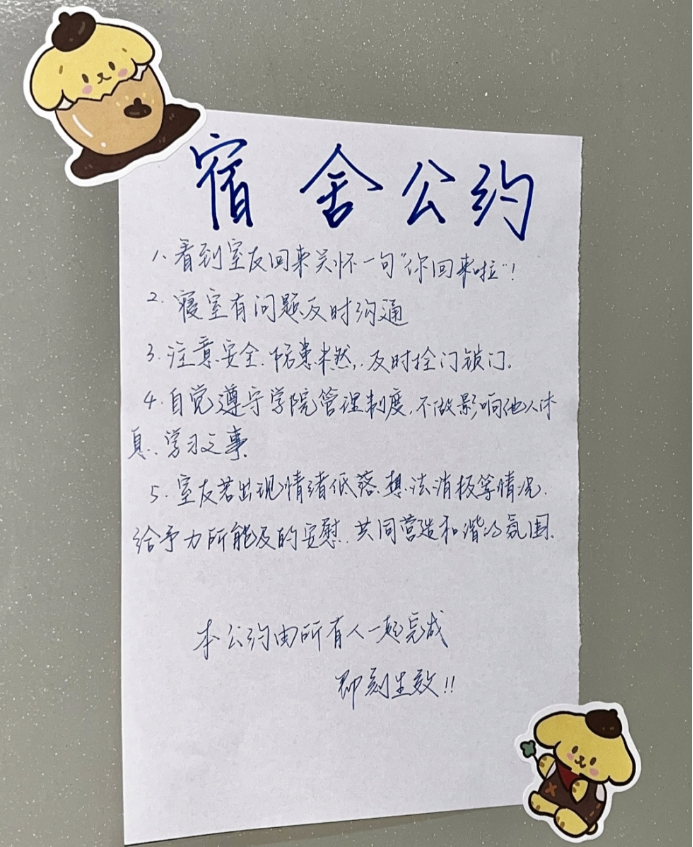 宿舍公约
1、看到室友回来关怀一句"你回来啦"!
2、寝室有问题及时沟通
3、注意安全、防患未然、及时拴门锁门.
4、自觉遵守学院管理制度,不做影响他人休
息、学习之事.
5、室友若出现情绪低落、想法消极等情况.
给予力所能及的安慰.共同营造和谐的氛围.
本公约由所有人一起完成
即刻生效!!